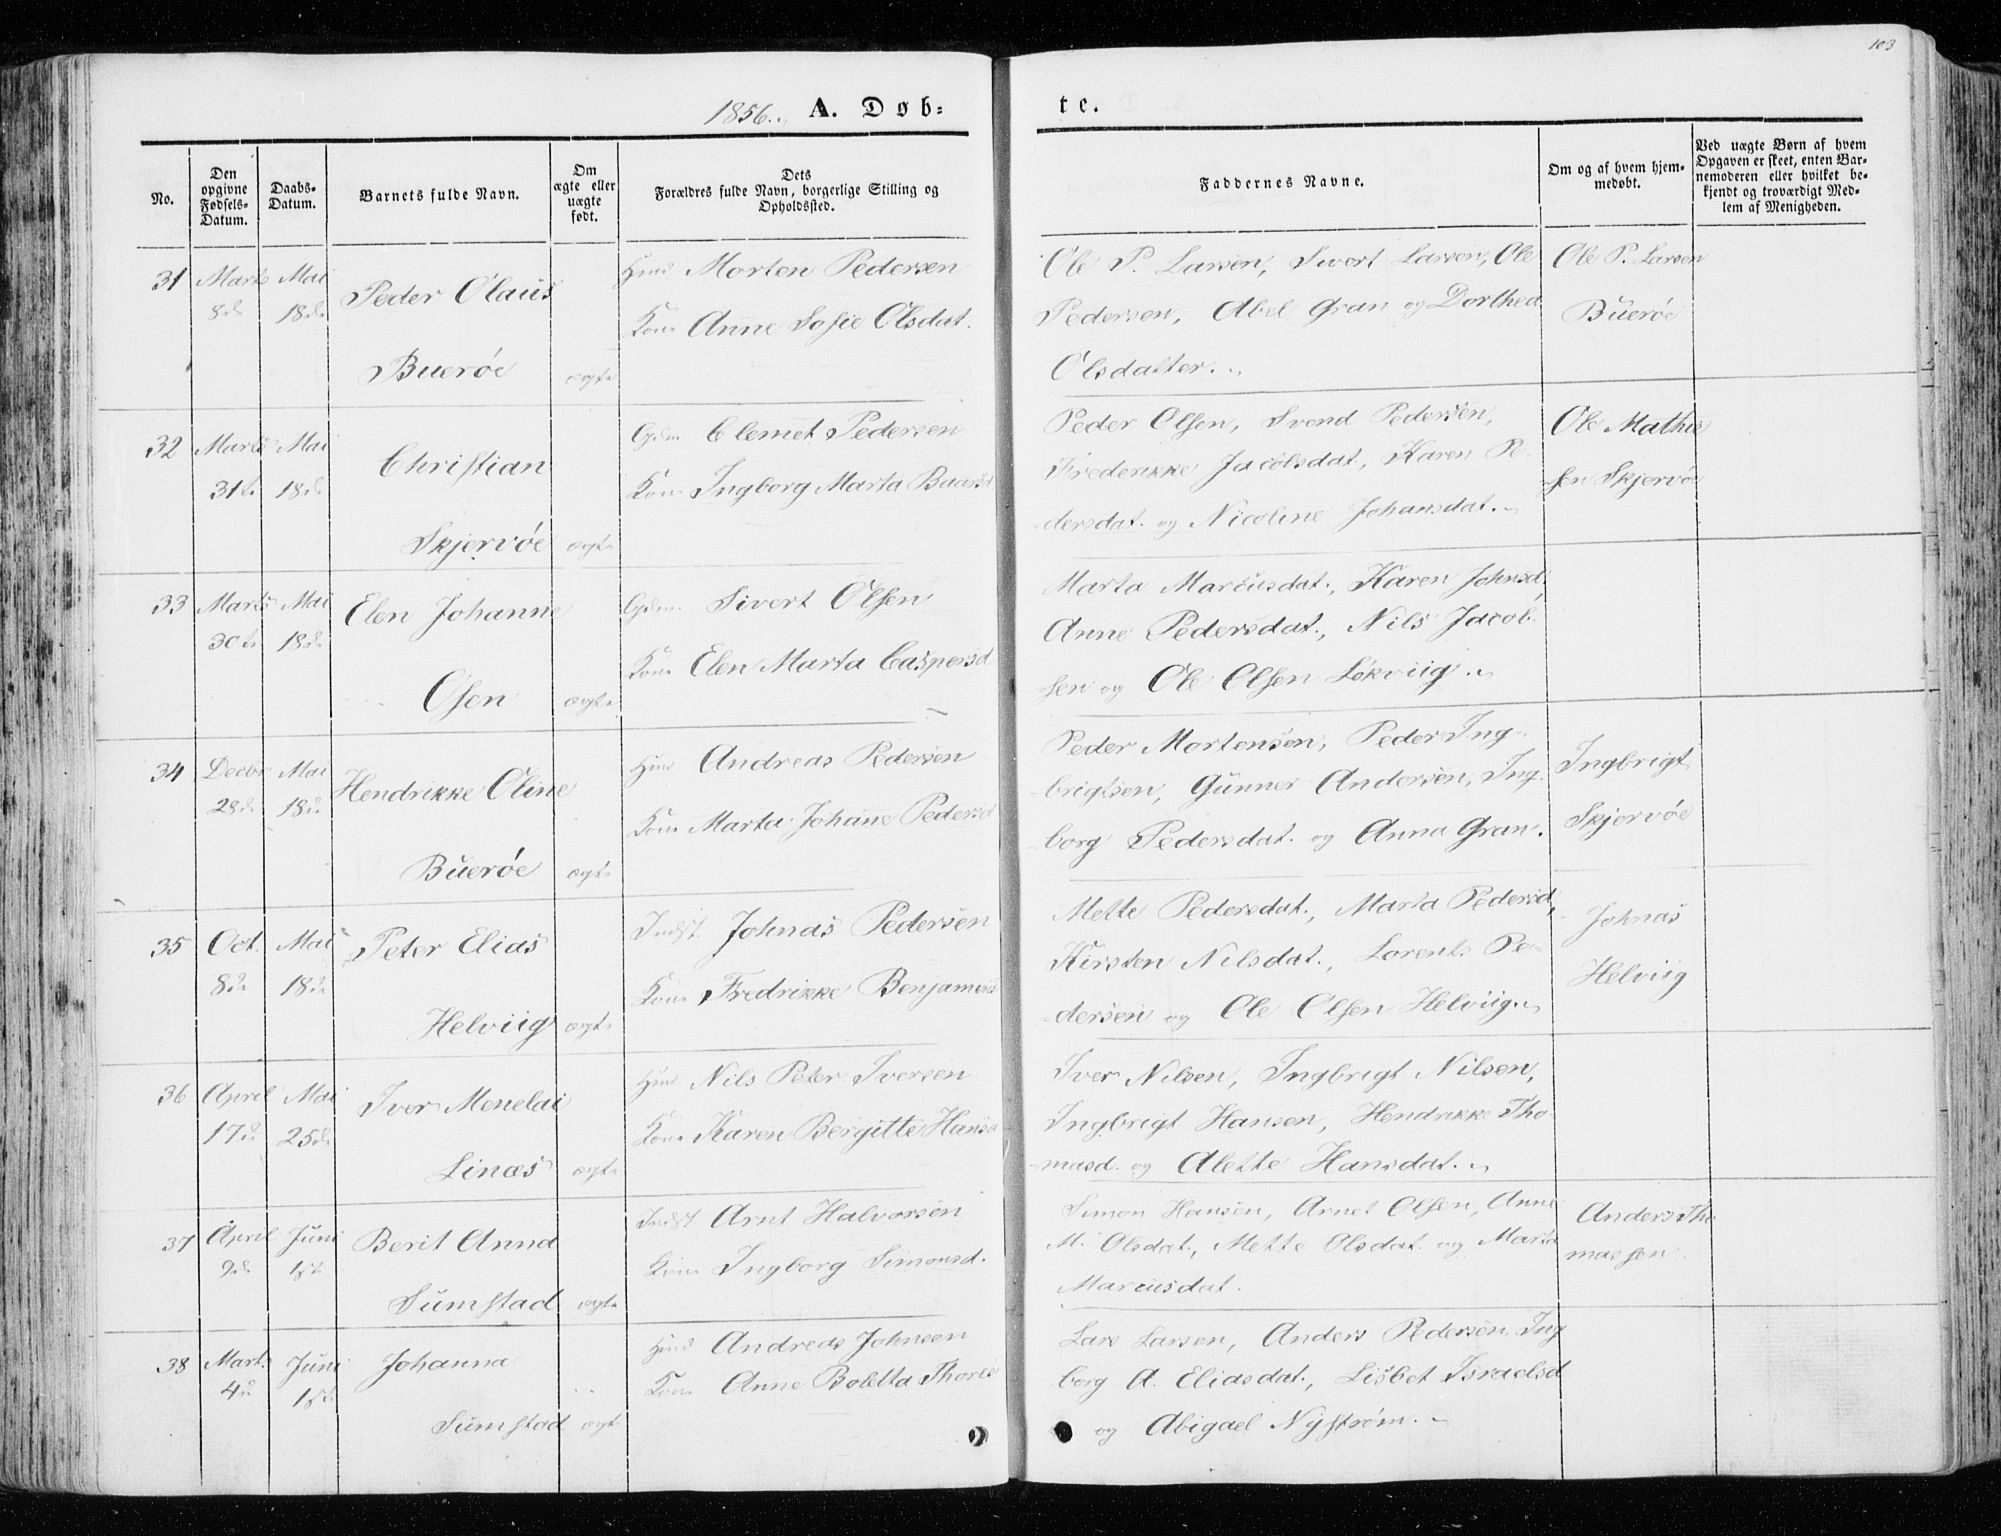 103
1856. A. Døb=
te.
No.
Den opgivne Fødsels-Datum.
Daabs-Datum.
Barnets fulde Navn.
Om ægte eller uægte født.
Dets Forældres fulde Navn, borgerlige Stilling og Opholdssted.
Faddernes Navne.
Om og af hvem hjemmedøbt.
Ved uægte Børn af hvem Opgaven er skeet, enten Barnemoderen eller hvilket bekjendt og troværdigt Medlem af Menigheden.
31 Marts Mai
8de 18de
Peder Olaus
Buerøe ægte
Huusm. Morten Pedersen
Kone Anne Sofie Olsdat.
Ole P. Larsen, Sivert Larsen, Ole
Pedersen, Abel Gran og Dorthea
Olsdatter.
Ole P. Larsen
Buerøe
32 Marts Mai
31te 18de
Christian
Skjervøe ægte
Gdm. Clemet Pedersen
Kone Ingborg Marta Baarsd
Peder Olsen, Svend Pedersen,
Frederikke Jacobsdat, Karen Pe-
dersdat. og Nicoline Johansdat.
Ole Mathis
sen Skjervøe
33 Marts Mai
30te 18de
Elen Johanne
Osen ægte
Gdm. Sivert Olsen
Kone Elen Marta Caspersd
Marta Marcusdat., Karen Johnsd,
Anne Pedersdat., Nils Jacob-
sen og Ole Olsen Løkviig.
34 Decbr Mai
28de 18de
Hendrikke Oline
Buerøe ægte
Huusm. Andreas Pedersen
Kone Marta Johanne Pedersd
Peder Mortensen, Peder Ing-
brigtsen, Gunner Andersen, Ing-
borg Pedersdat. og Anna Gran.
Ingbrigt
Skjervøe
35 Oct. Mai
8de 18de
Peter Elias
Helviig ægte
Indst. Johnas Pedersen
Kone Fredrikke Benjamins
Mette Pedersdat., Marta Pedersd,
Kirsten Nilsdat., Lorents Pe-
dersen og Ole Olsen Helviig.
Johnas
Helviig
36 April Mai
17de 25de
Iver Menelai
Linæs ægte
Huusm. Nils Peter Iversen
Kone Karen Bergitte Hansd
Iver Nilsen, Ingbrigt Nilsen,
Ingbrigt Hansen, Hendrikke Tho-
masd. og Alette Hansdat.
37 April Juni
9de 1ste
Berit Anna
Sumstad ægte
Indst Arnt Halvorsen
Kone Ingborg Simonsd.
Simon Hansen, Arnet Olsen, Anne
M. Olsdat., Mette Olsdat. og Marta
Marcusdat.
Anders Tho
massen
38 Marts Juni
4de 1ste
Johanna
Sumstad ægte
Huusm. Andreas Johnsen
Kone Anne Boletta Thores
Lars Larsen, Anders Pedersen, Ing
borg A. Eliasdat., Lisbet Israelsd
og Abigael Nystrøm.